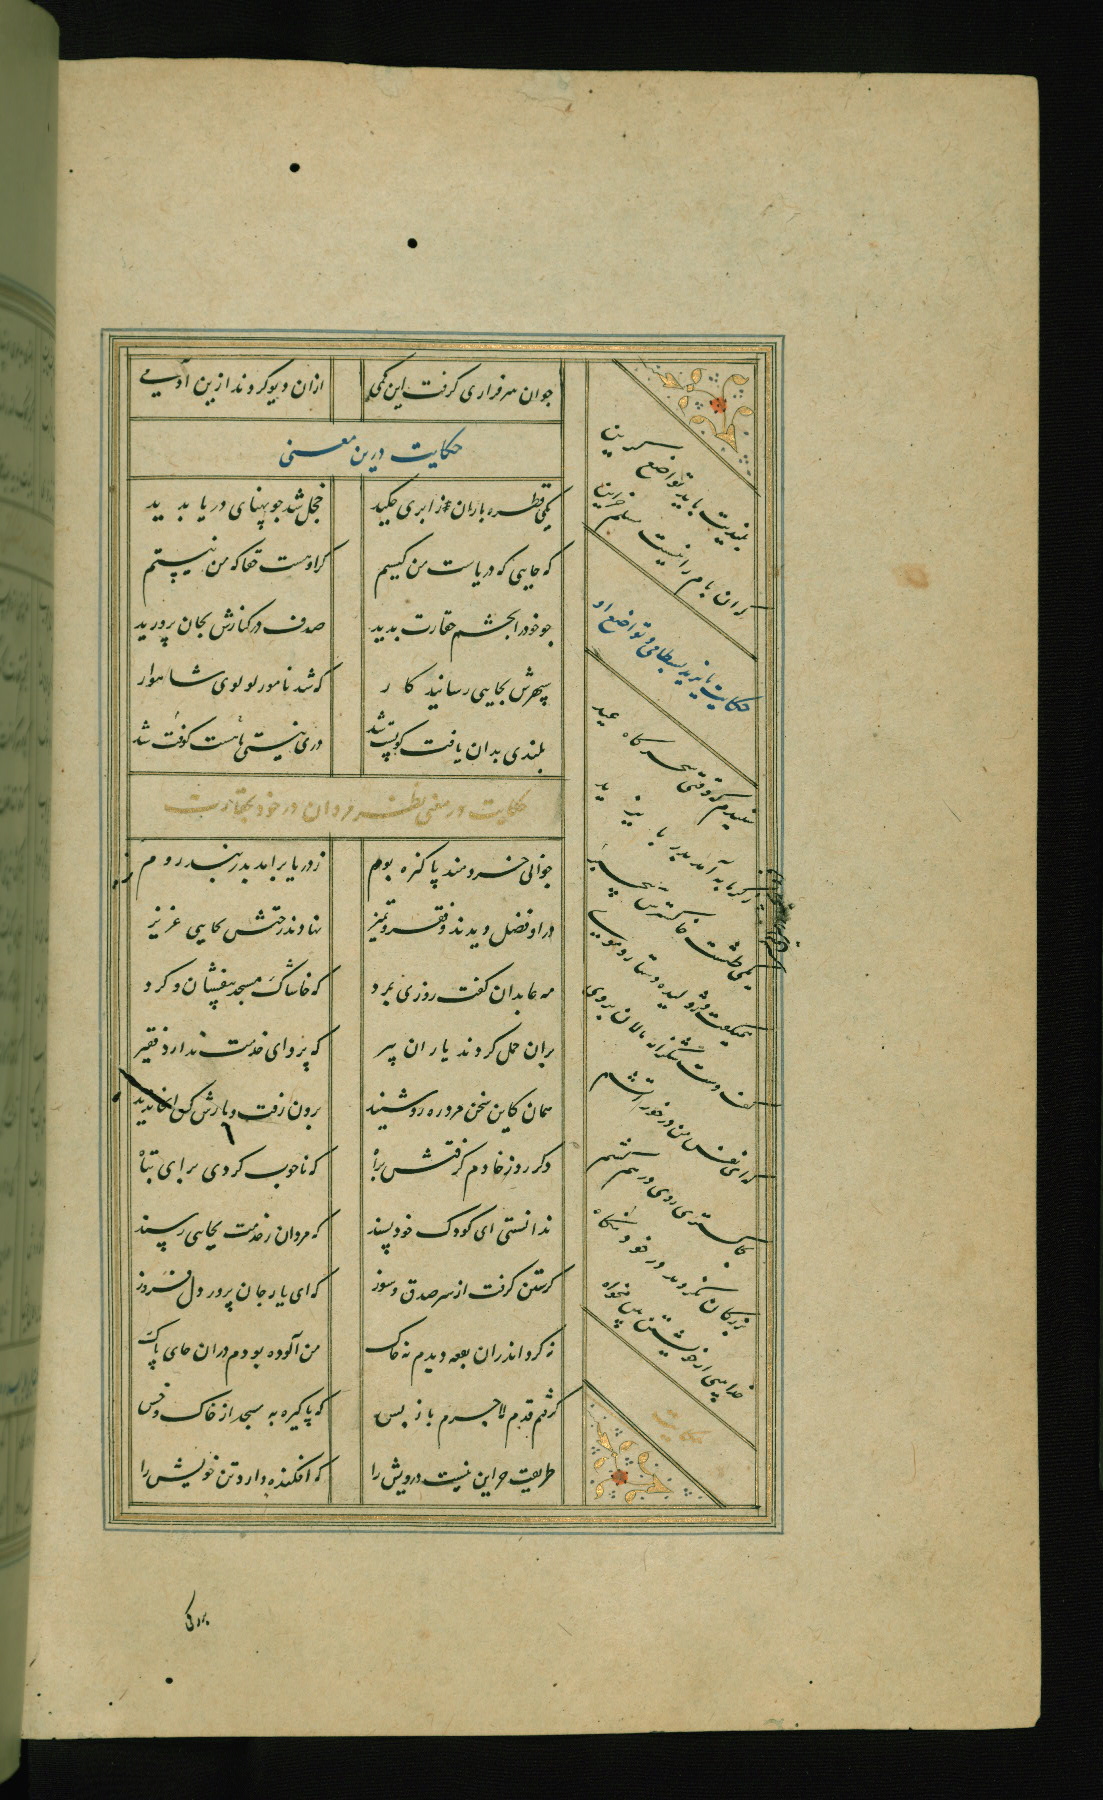 جوان سرفرازی گرفت این کمی ازان دیو کردند ازین آدمی
حکایت درین معنی
یکی قطره باران ز ابری چکید خجل شد چو پهنای دریا بدید
که جایی که دریاست من کیستم گر اوهست حقا که من نیستم
چو خود را بچشم حقارت بدید صدف در کنارش بجان پرورید
سپهرش بجایی رسانید کار که شد نامور لولوی شاهوار
بلندی بدان یافت کو پست شد در نیستی کوفت تا هست شد
حکایت در معنی نظر مردان در خود بحقارت
جوانی خردمند پاکیزه بوم ز دریا برآمد بدربند روم
درو فضل دیدند و فقر و تمیز نهادند رختش بجایی عزیز
مه عابدان گفت روزی بمرد که خاشاک مسجد بیفشان و گرد
بران حمل کردند یاران پیر که پروای خدمت ندارد فقیر
همان کاین سخن مرد ره رو شنید برون رفت و بازش کس آنجا ندید
دگر روز خادم گرفتش براه که ناخوب کردی برای تباه
ندانستی ای کودک خودپسند که مردان ز خدمت بجایی رسند
گرستن گرفت از سر صدق و سوز که ای یار جان پرور دل فروز
نه گرد اندران بقعه دیدم نه خاک من آلوده بودم دران جای پاک
گرفتم قدم لاجرم باز پس که پاکیزه به مسجد از خاک و خس
طریقت جز این نیست درویش را که افکنده دارد تن خویش را
بلندیت باید تواضع گزین
که آن بام را نیست سلم جز این
حکایت بایزید بسطامی و تواضع او
شنیدم که وقتی سحرگاه عید
ز گرمابه آمد بدر بایزید
یکی طشت خاکسترش بیخبر
همیگفت و ژولیده دستار و موی
کف دست شکرانه مالان بروی
که ای نفس من در خور آتشم
بخاکستری روی درهم کشم
بزرگان نکردند در خود نگاه
خدا بینی از خویشتن بین مخواه
بزرگی